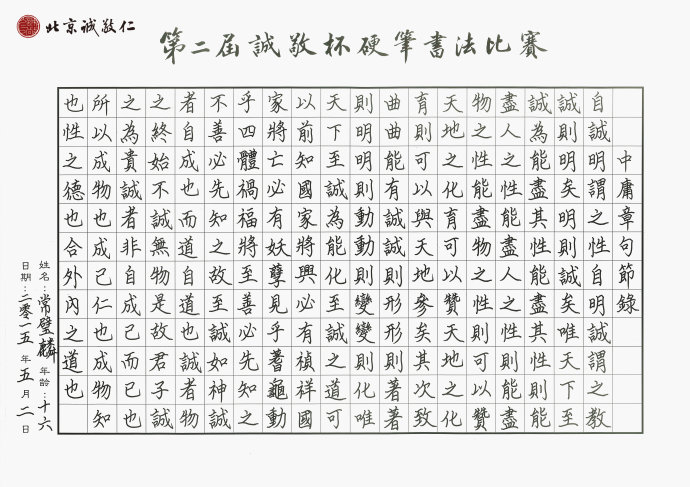 北京誠敬仁
第二屆誠敬杯硬筆書法比賽
中庸章句節錄
自誠明謂之性自明誠謂之教
誠則明矣明則誠矣唯天下至
誠為能盡其性能盡其性則能
盡人之性能盡人之性則能盡
物之性能盡物之性則可以贊
天地之化育可以贊天地之化
育則可以與天地參矣其次致
曲曲能有誠誠則形形則著著
則明明則動動則變變則化唯
天下至誠為能化至誠之道可
以前知國家將興必有禎祥國
家將亡必有妖孽見乎蓍龜動
乎四體禍福將至善必先知之
不善必先知之故至誠如神誠
者自成也而道自道也誠者物
之終始不誠無物是故君子誠
之為貴誠者非自成己而已也
所以成物也成己仁也成物知
也性之德也合外內之道也
姓名：常璧麟 年齡：十六
日期：二零一五年五月二日